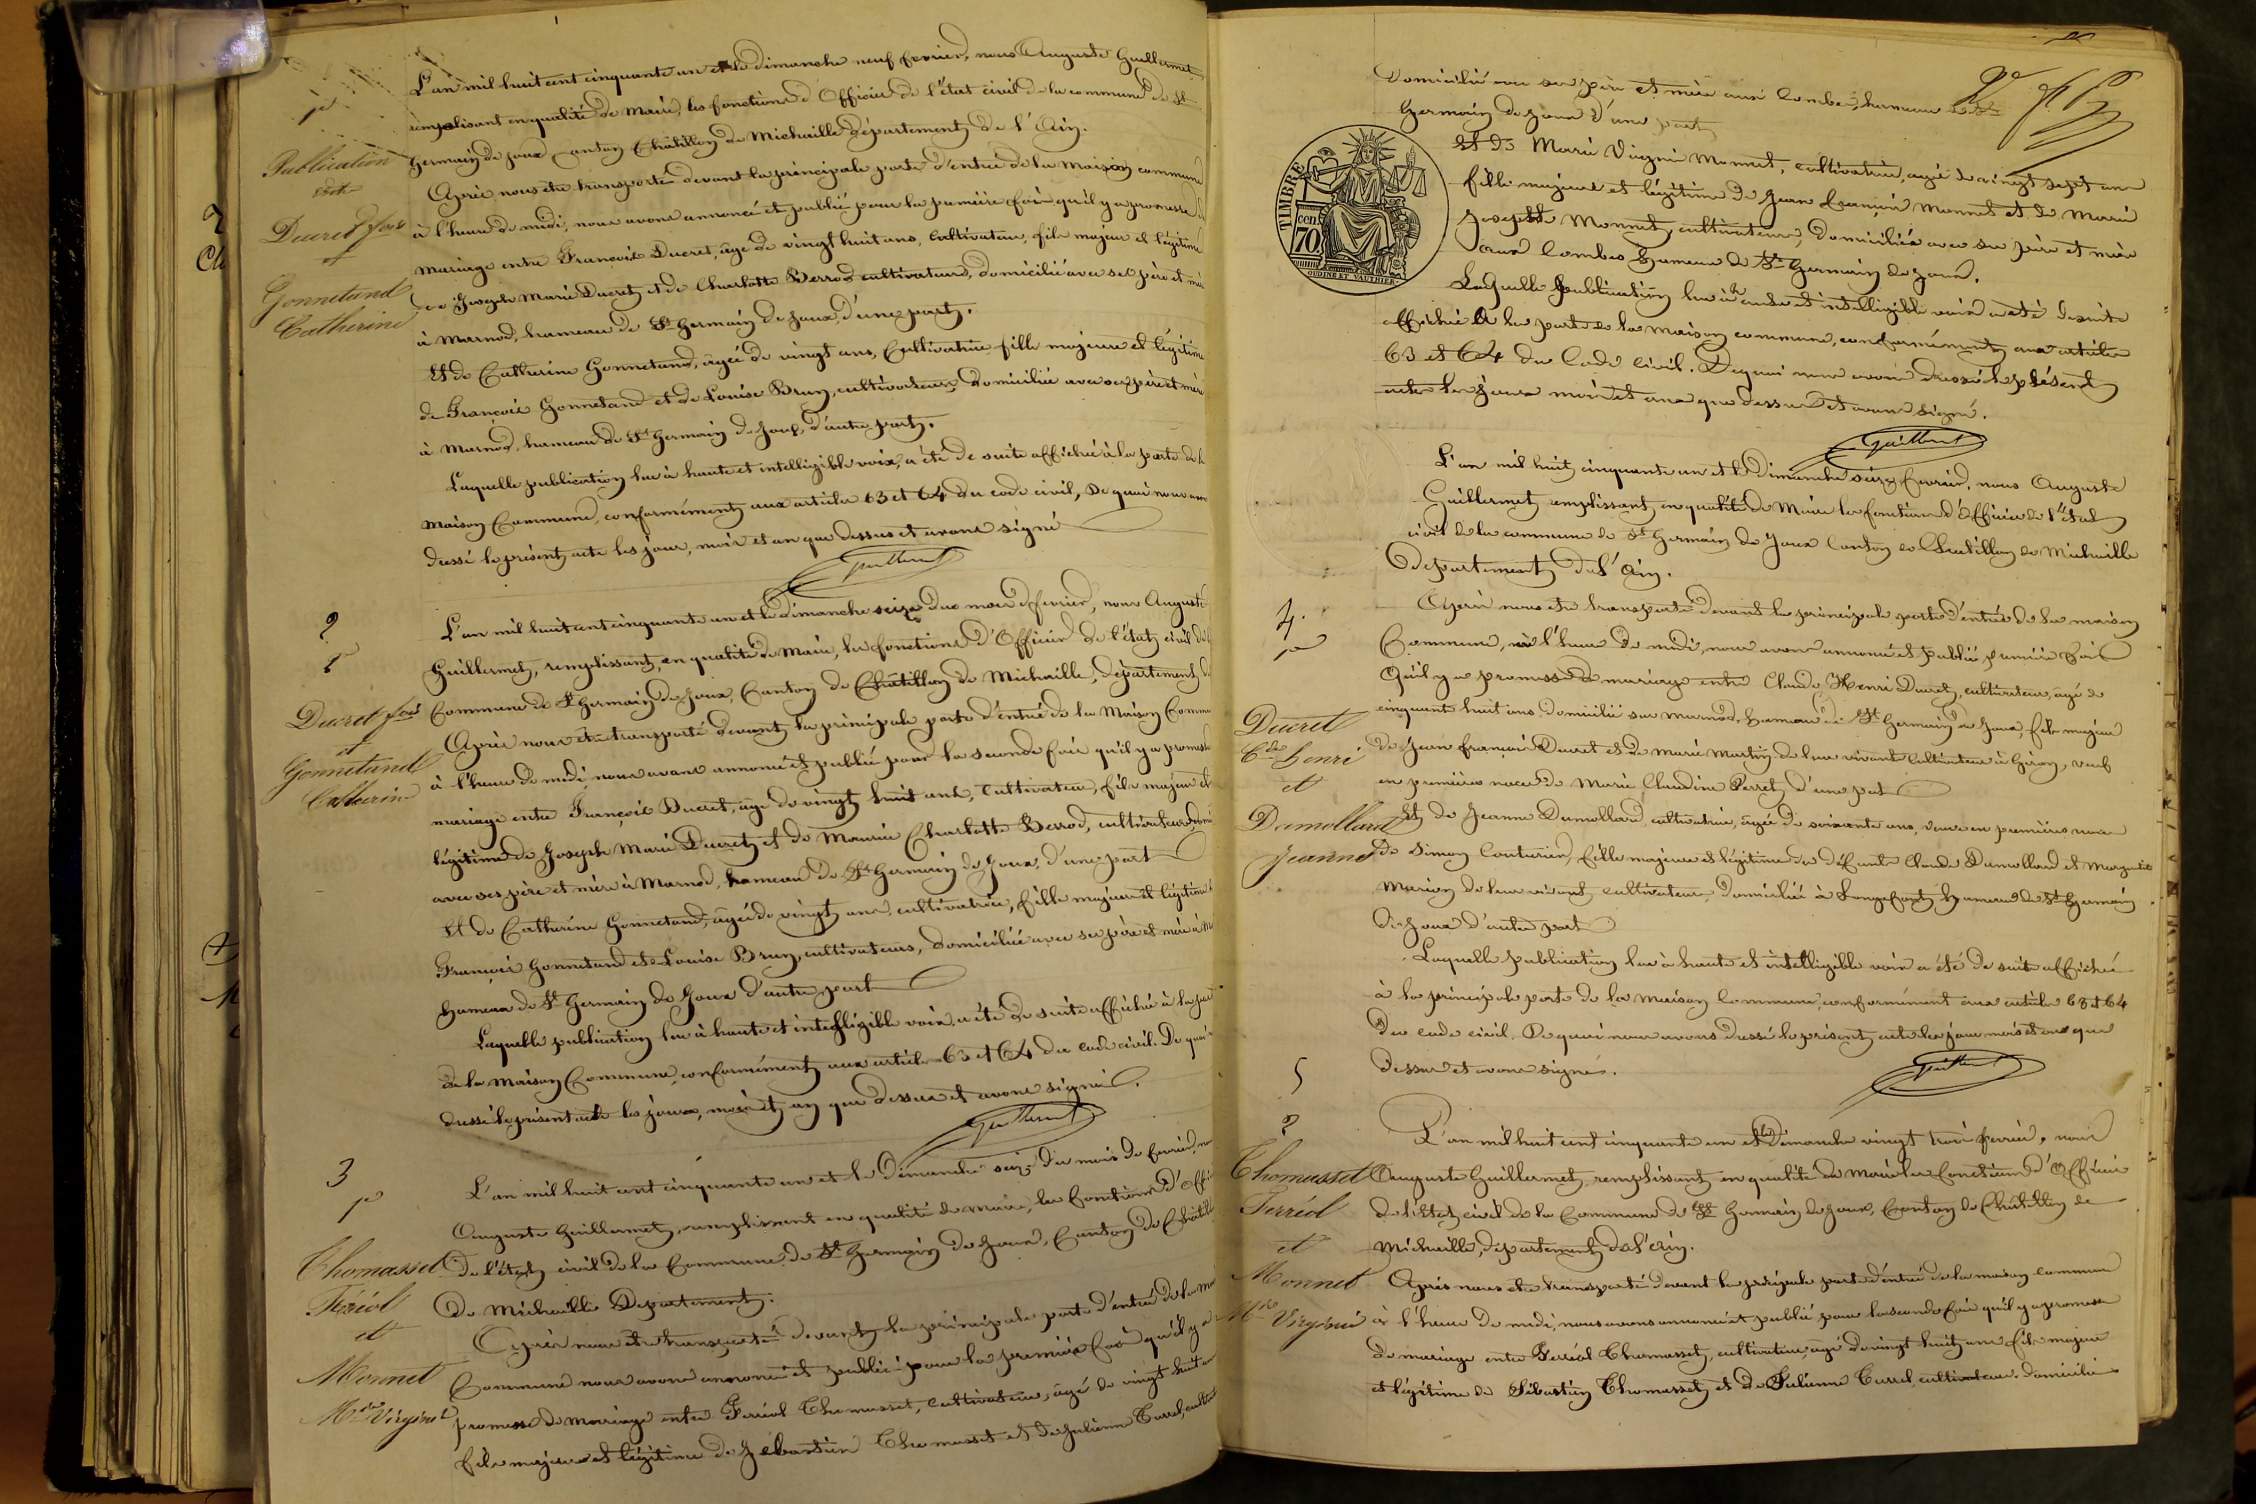 1
1e
Publication
entre
Ducret fois
et
Gonnetand
Catherine
L'an mil huit cent cinquante un et le dimanche neuf fevrier, nous Auguste Guillermet
remplissant en qualité de Maire, les fonctions d'Officier de l'état civil de la commune de St
Germain de Joux canton Châtillon de Michaille département de l'Ain.
Après nous être transporté devant la principale porte d'entrée de la Maison commune
à l'heure de midi, nous avons annoncé et publié pour la premiere fois qu'il y a promesse de
mariage entre François Ducret, âgé de vingt huit ans, cultivateur, fils majeur et légitime
de Joseph Marie Ducret et de Charlotte Berrod cultivateurs, domicilié avec ses père et mère
à Marnod, hameau de St Germain de Joux, d'une part.
Et de Catherine Gonnetand, âgée de vingt ans, cultivatrice fille majeure et légitime
de François Gonnetand et de Louise Brun, cultivateurs, domiciliée avec ses père et mère
à Marnod, hameau de St Germain de Joux, d'autre part.
Laquelle publication lue à haute et intelligible voix, a été de suite affichée à la porte de la
Maison Commune, conformément aux articles 63 et 64 du code civil, De quoi nous avons
dressé le présent acte les jour, mois et an que dessus et avons signé
Guillermet
2
1e
Ducret fois
et
Gonnetand
Catherine
L'an mil huit cent cinquante un et le dimanche seize du mois de fevrier, nous Auguste
Guillermet, remplissant, en qualité de Maire, les fonctions d'Officier de l'état civil de la
Commune de St Germain de Joux, Canton de Châtillon de Michaille, département de
Après nous être transporté devant la principale porte d'entrée de la Maison Commune
à l'heure de midi, nous avons annoncé et publié pour la seconde fois qu'il y a promesse
mariage entre François Ducret, âgé de vingt huit ans, cultivateur, fils majeur et
légitime de Joseph Marie Ducret et de Maurie Charlotte Berrod, cultivateurs, domicilié
avec ses père et mère à Marnod, hameau de St Germain de Joux, d'une part
Et de Catherine Gonnetand, âgée de vingt ans, cultivatrice, fille majeure et légitime de
François Gonnetand et de Louise Brun, cultivateurs, domiciliée avec ses père et mère à
hameau de St Germain de Joux d'autre part
Laquelle publication lue à haute et intelligible voix, a été de suite affichée à la porte
de la Maison Commune, conformément aux articles 63 et 64 du code civil. De quoi
dressé le présent acte les jour, mois et an que dessus et avons signé.
Guillermet
3
1e
Thomasset
Feréol
et
Monnet
Mie Virginie
L'an mil huit cent cinquante un et le dimanche seize du mois de fevrier, nous
Auguste Guillermet, remplissant en qualité de maire, les fonctions d'Officier
de l'état civil de la Commune de St Germain de Joux, Canton de Châtillon
de Michaille Département.
Après nous être transporté devant la principale porte d'entrée de la Maison
Commune nous avons annoncé et publié pour la premiere fois qu'il y a
promesse de mariage entre Ferréol Thomasset, cultivateur, âgé de vingt huit ans
fils majeur et légitime de Sébastien Thomasset et de Julienne Turrel, cultivateurs
domicilié avec ses père et mère aux Combes, hameau de St
Germain de Joux d'une part
TIMBRE
70 cen
OUDINE ET VAUTHIER
Et de Marie Virginie Monnet, cultivatrice, agée de vingt sept ans
fille majeure et légitime de Jean François Monnet et de Marie
Josephte Monnet, cultivateurs, domiciliée avec ses père et mère
aux Combes hameau de St Germain de Joux.
Laquelle publication lue à haute et intelligible voix a été de suite
affichée à la porte de la maison commune, conformément aux articles
63 et 64 du Code civil. De quoi nous avons dressé le présent
acte les jour mois et an que dessus et avons signé.
Guillermet
4.
1e
Ducret
Cde henri
et
Dumollard
Jeanne
L'an mil huit cinquante un et le Dimanche seize fevrier, nous Auguste
Guillermet, remplissant en qualité de Maire les fonctions d'Officier de l'état
civil de la commune de St Germain de Joux Canton de Chatillon de Michaille
Département de l'Ain.
Après nous être transporté devant la principale porte d'entrée de la maison
Commune, à l'heure de midi, nous avons annoncé et publié premiere fois
Qu'il y a promesse de mariage entre Claude Henri Ducret, cultivateur, agé de
cinquante huit ans, domicilié sur Marnod, hameau de St Germain de Joux, fils majeur
de Jean françois Ducret et de marie Martin de leur vivant Cultivateurs à Giron, veuf
en premières noces de Marie Claudine Perret, d'une part
Et de Jeanne Dumollard, cultivatrice, agée de soixante ans, veuve en premières noces
de Simon Couturier, fille majeure et légitime de défunts Claude Dumollard et Marguerite
Marion de leur vivant cultivateurs, domiciliée à Longefont hameau de St Germain
de Joux d'autre part
Laquelle publication lue à haute et intelligible voix a été de suite affichée
à la principale porte de la maison Commune, conformément aux articles 63 et 64
du code civil. De quoi nous avons dressé le présent acte les jour mois et an que
dessus et avons signé.
Guillermet
5
2
Thomasset
Ferréol
et
Monnet
Mie Virginie
L'an mil huit cent cinquante un et le dimanche vingt trois fevrier, nous
Auguste Guillermet, remplissant en qualité de maire les fonctions d'Officier
de l'état civil de la Commune de St Germain de Joux, Canton de Châtillon de
Michaille, département de l'Ain.
Après nous être transporté devant la principale porte d'entrée de la maison commune
à l'heure de midi, nous avons annoncé et publié pour la seconde fois qu'il y a promesse
de mariage entre Ferréol Thomasset, cultivateur, agé de vingt huit ans fils majeur
et légitime de Sébastien Thomasset et de Julienne Turrel, cultivateurs, domicilié